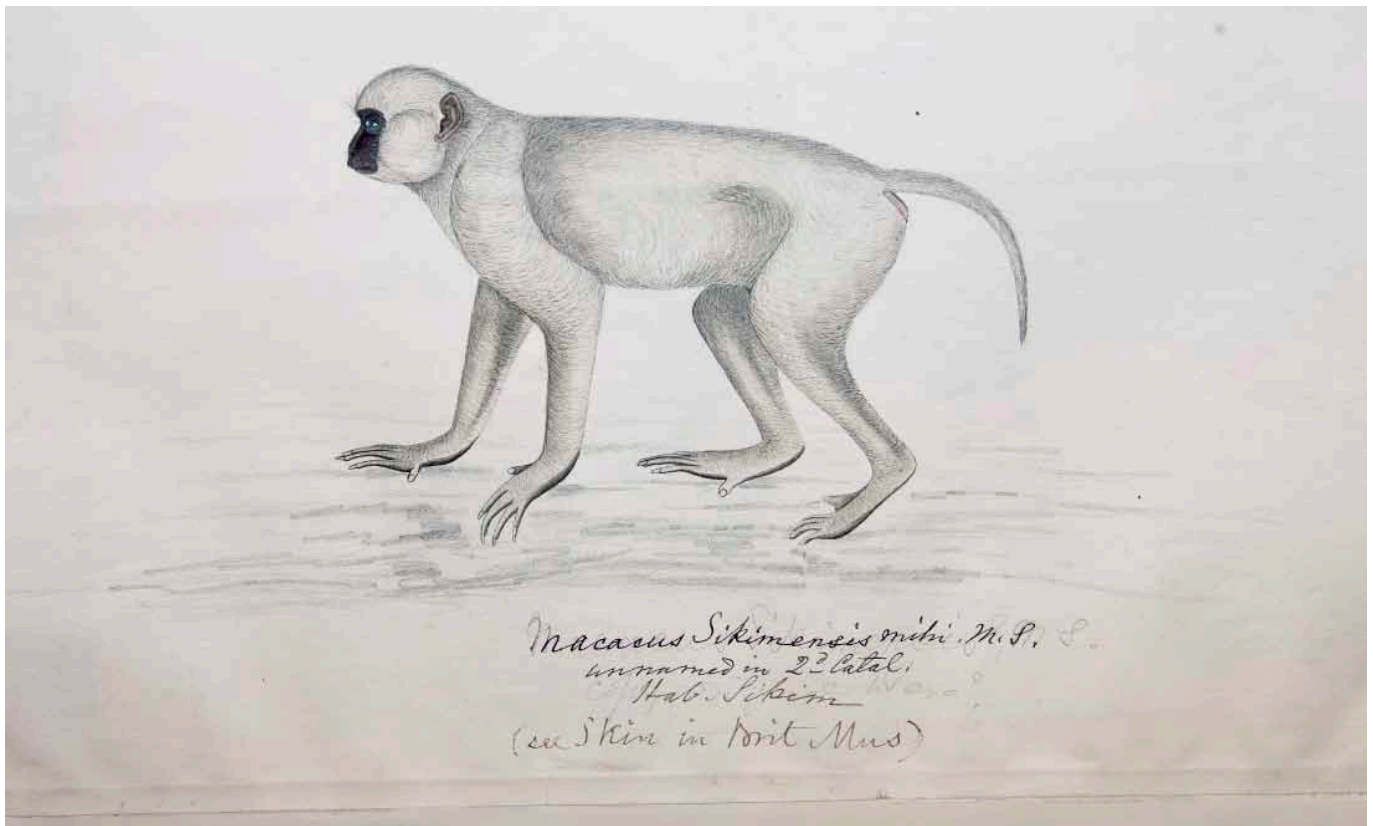 Macacus Sikimensis mihi. M.S. S.
unnamed in 2d Catal.
Hab. Sikim
(see Skin in Brit Mus)